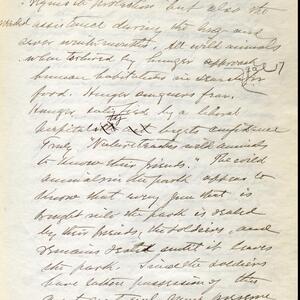 protection but also the
needed assistance during the long and
winter months. All wild animals
when tortured by hunger approach
human habitations in search for
food. Hunger conquers fear.
Hunger satisfied by a liberal
hospitality begets confidence
Truly "Nature teaches wild animals
to know their friends." The wild
animals in the park appear to
know that every gun that is
brought into the park is sealed
by their friends, the soldiers, and
remains sealed until it leaves
the park. Since the soldiers
have taken possession of this